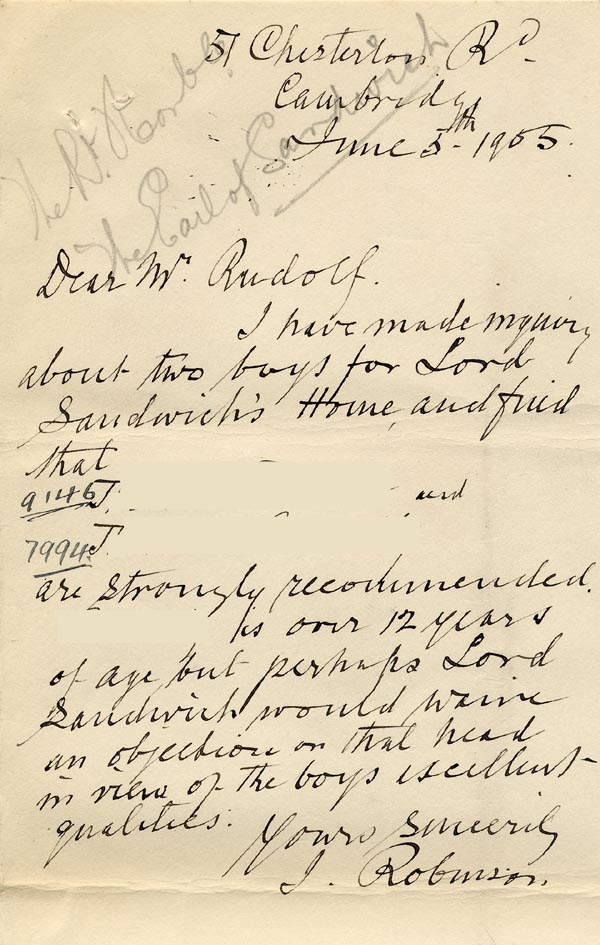 57 Chesterton Rd
Cambridge
June 5th 1905.
The Rt. Honble.
The Earl of Sandwich
Dear Mr. Rudolf.
I have made inquiry
about two boys for Lord
Sandwich's Home, and find
that
9146 J. and
7994 J.
are strongly recommended.
is over 12 years
of age, but perhaps Lord
Sandwich would waive
an objection on that head
in view of the boys excellent
qualities.
Yours sincerely
J. Robinson.